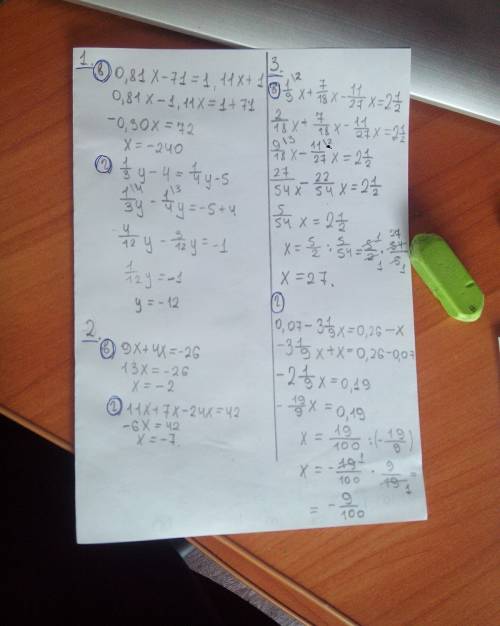 1.
в) 0,81x-71=1,11x+1
0,81x-1,11x=1+71
-0,30x=72
x=-240
г) 1/3 y-4=1/4 y-5
1\4/3 y-1\3/4 y=-5+4
4/12 y-3/12 y=-1
1/12 y=-1
y=-12
2.
в) 9x+4x=-26
13x=-26
x=-2
г) 11x+7x-24x=42
-6x=42
x=-7.
3.
в) 1\2/9 x+7/18 x-11/27 x=2 1/2
2/18 x+7/18 x-11/27 x=2 1/2
9\3/18 x-11\2/27 x=2 1/2
27/54 x-22/54 x=2 1/2
5/54 x=2 1/2
x=5/2:5/54=5 1/2 1·54 27/5 1
x=27.
г)
0,07-3 1/9 x=0,26-x
-3 1/9 x+x=0,26-0,07
-2 1/9 x=0,19
-19/9 x=0,19
x=19/100:(-19/9)
x=-19 1/100·9/19 1=
=-9/100